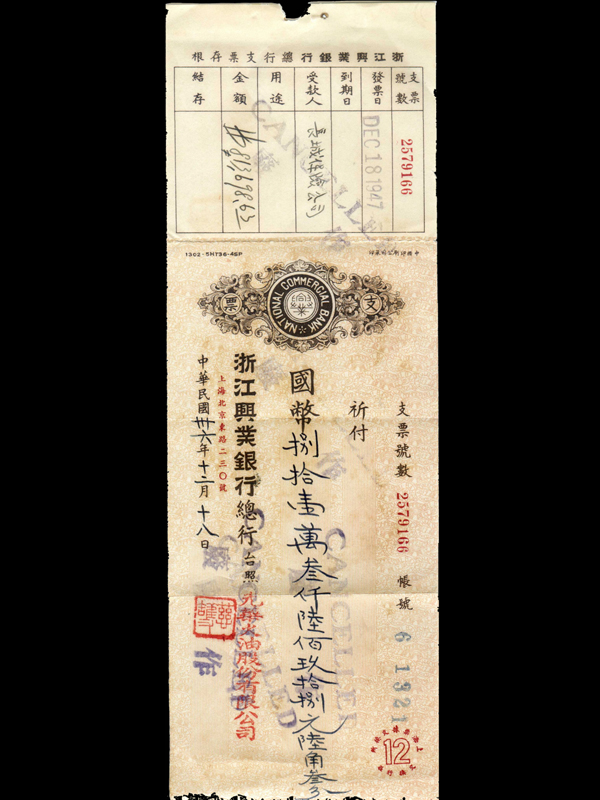 浙江興業銀行總行支票存根
支票號數
2579166
發票日
DEC 18 1947
到期日
受款人
用途
金額
$813698.63
結存
CANCELLED
1302-5HT36-45P
支
票
NATIONAL COMMERCIAL BANK
支票號數 2579166 帳號 6 1321
祈付
國幣捌拾壹萬叁仟陸佰玖拾捌元陸角叁分
浙江興業銀行總行台照
上海北京東路二三〇號
中華民國卅六年十二月十八日
火油股份有限公司
CANCELLED
CANCELLED
作
12